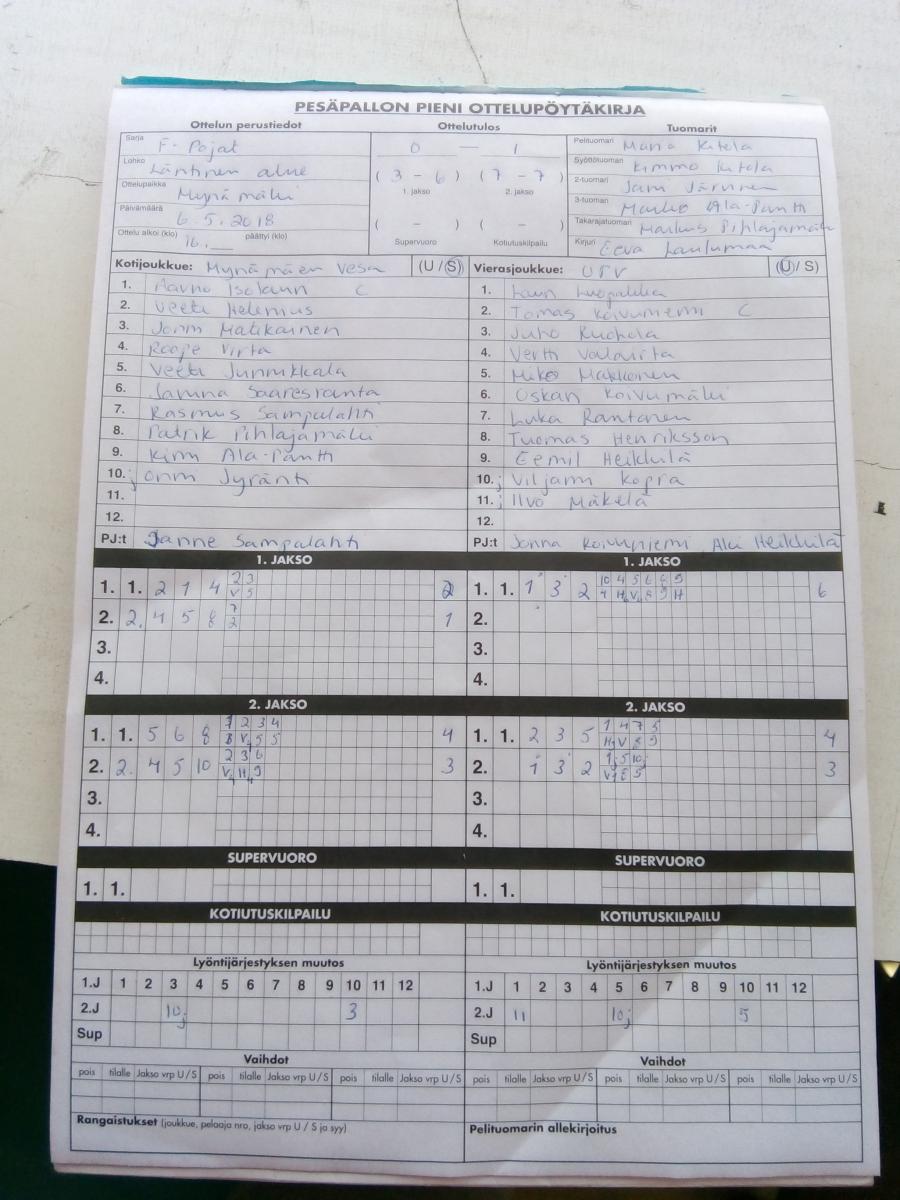 PESÄPALLON PIENI OTTELUPÖYTÄKIRJA
Ottelun perustiedot Ottelutulos Tuomarit
Sarja F-Pojat 0 — 1 Pelituomari Maria Kitola
Lohko Läntinen alue ( 3 - 6 ) ( 7 - 7 ) Syöttötuomari Kimmo Kitola
1. jakso 2. jakso
Ottelupaikka Mynämäki 2-tuomari Jani Järvinen
Päivämäärä 6.5.2018 3-tuomari Marko Ala-Pantti
( - ) ( - ) Takarajatuomari Markus Pihlajamäki
Ottelu alkoi (klo) 16.__ päättyi (klo) Supervuoro Kotiutuskilpailu Kirjuri Eeva Laulumaa
Kotijoukkue: Mynämäen Vesa (U / S) Vierasjoukkue: UTV (U / S)
1. Aarno C 1.
2. Veeti Helenius 2. Tomas Koivuniemi C
3. Jonni Matikainen 3. Juho
4. Roope Virta 4. Vertti
5. Veeti Junnikkala 5. Miko Makkonen
6. Saaresranta 6. Oskari Koivumäki
7. Rasmus Sampalahti 7. Luka Rantanen
8. Patrik Pihlajamäki 8. Tuomas Henriksson
9. Kimi Ala-Pantti 9. Eemil Heikkilä
10.j Onni Jyränti 10.j Viljami Kopra
11. 11.j Ilvo Mäkelä
12. 12.
PJ:t Janne Sampalahti PJ:t Jonna Koivuniemi Aki Heikkilä
1. JAKSO 1. JAKSO
1. 1. 2 1 4 2 3 2 1. 1. 1 3 2 10 4 5 6 8 9 6
V 5 4 H V 8 9 H
2. 2. 4 5 8 7 1 2.
2
3. 3.
4. 4.
2. JAKSO 2. JAKSO
1. 1. 5 6 8 1 2 3 4 4 1. 1. 2 3 5 1 4 7 5 4
8 V 5 5 H V 8 9
2. 2. 4 5 10 2 3 6 3 2. 1 3 2 1j 5 10j 3
V H 9 V 8 5
3. 3.
4. 4.
SUPERVUORO SUPERVUORO
1. 1. 1. 1.
KOTIUTUSKILPAILU KOTIUTUSKILPAILU
Lyöntijärjestyksen muutos Lyöntijärjestyksen muutos
1.J 1 2 3 4 5 6 7 8 9 10 11 12 1.J 1 2 3 4 5 6 7 8 9 10 11 12
2.J 10j 3 2.J 11 10j 5
Sup Sup
Vaihdot Vaihdot
pois tilalle Jakso vrp U / S pois tilalle Jakso vrp U / S pois tilalle Jakso vrp U / S pois tilalle Jakso vrp U / S pois tilalle Jakso vrp U / S pois tilalle Jakso vrp U / S
Rangaistukset (joukkue, pelaaja nro, jakso vrp U / S ja syy) Pelituomarin allekirjoitus